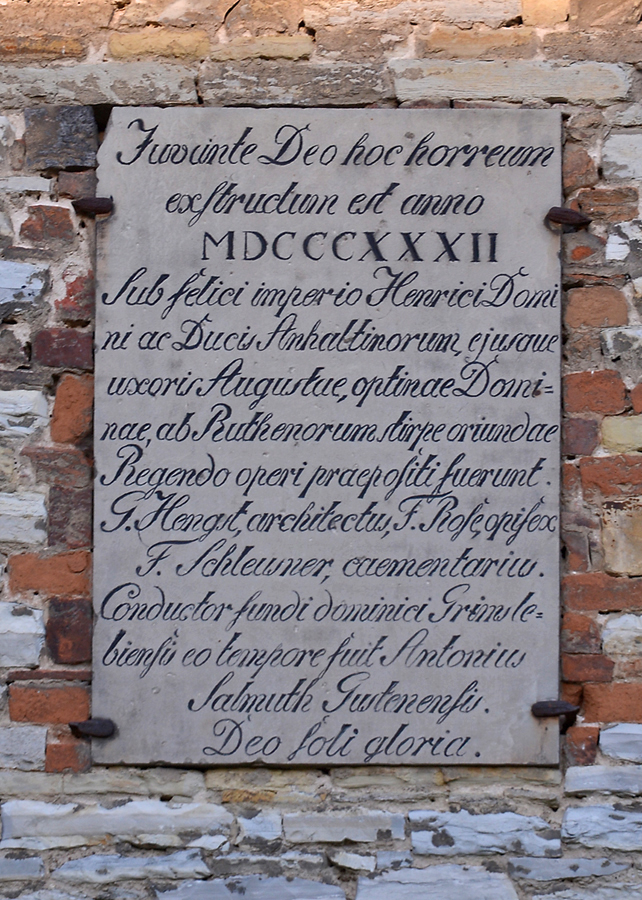 Juvuinte Deo hoc horreum
exſtructum est anno
MDCCCXXXII
Sub felici imperio Henrici Domi
ni ac Ducis Anhaltinorum, ejusque
uxoris Augustae, optinae Domi=
nae, ab Ruthenorum stirpe oriundae
Regendo operi praepoſiti fuerunt.
G. Hengst, architectus, F. Roſe, opifex
F. Schleusner, caementarius.
Conductor fundi dominici Grimsle=
bienſis eo tempore fuit Antonius
Salmuth Gustenenſis.
Deo ſoli gloria.